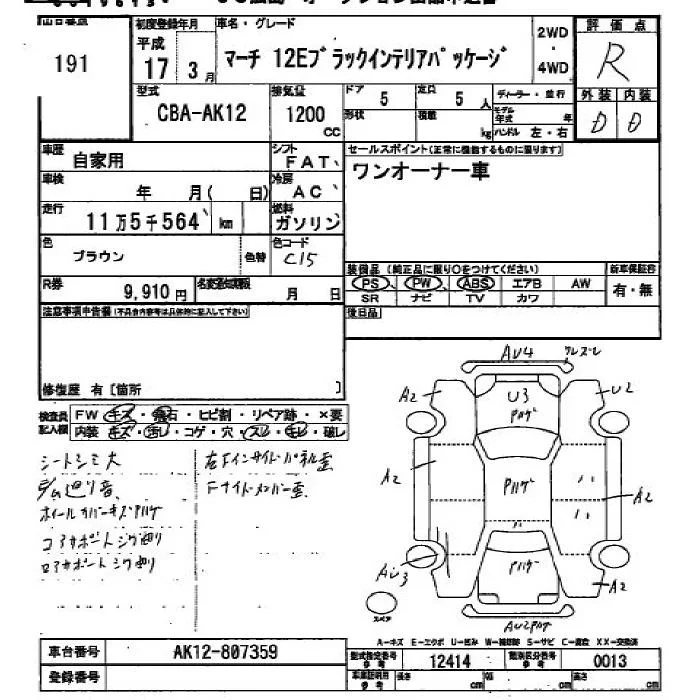 191
初度登録年月
平成
17 3月
車名・グレード
マーチ 12Eブラックインテリアパッケージ
2WD
・
4WD
評価点
R
外装 内装
D D
型式
CBA-AK12
排気量
1200
CC
ドア
5
定員
5 人
形状
積載
kg
ディーラー・並行
モデル年式 年
ハンドル 左・右
車歴
自家用
シフト
FAT
セールスポイント(正常に機能するものに限ります)
ワンオーナー車
車検
年 月( 日)
冷房
AC
走行
11万5千564 km
燃料
ガソリン
色
ブラウン
色替
色コード
C15
装備品 (純正品に限り○をつけてください)
新車保証書
PS PW ABS エアB AW
有・無
SR ナビ TV カワ
後日品
R券
9,910円
名変通知期限
月 日
注意事項申告欄 (不具合内容等は具体的に記入して下さい)
修復歴 有 [箇所 ]
検査員
記入欄
FW キズ・飛石・ヒビ割・リペア跡・×要
内装 キズ・汚レ・コゲ・穴・スレ・キレ・破レ
シートシミ大
ホイールカバーキズアリ
コアサポート
左Fインサイドパネル歪
Fサイドメンバー歪
AU4
A2
U3
U2
A2
A2
AU3
A2
スペア
A-キズ E-エクボ U-凹み W-補修跡 S-サビ C-腐蝕 XX-交換済
車台番号
AK12-807359
登録番号
型式指定番号
参考
12414
類別区分番号
参考
0013
車庫証明用
参考
長さ cm
幅 cm
高さ cm